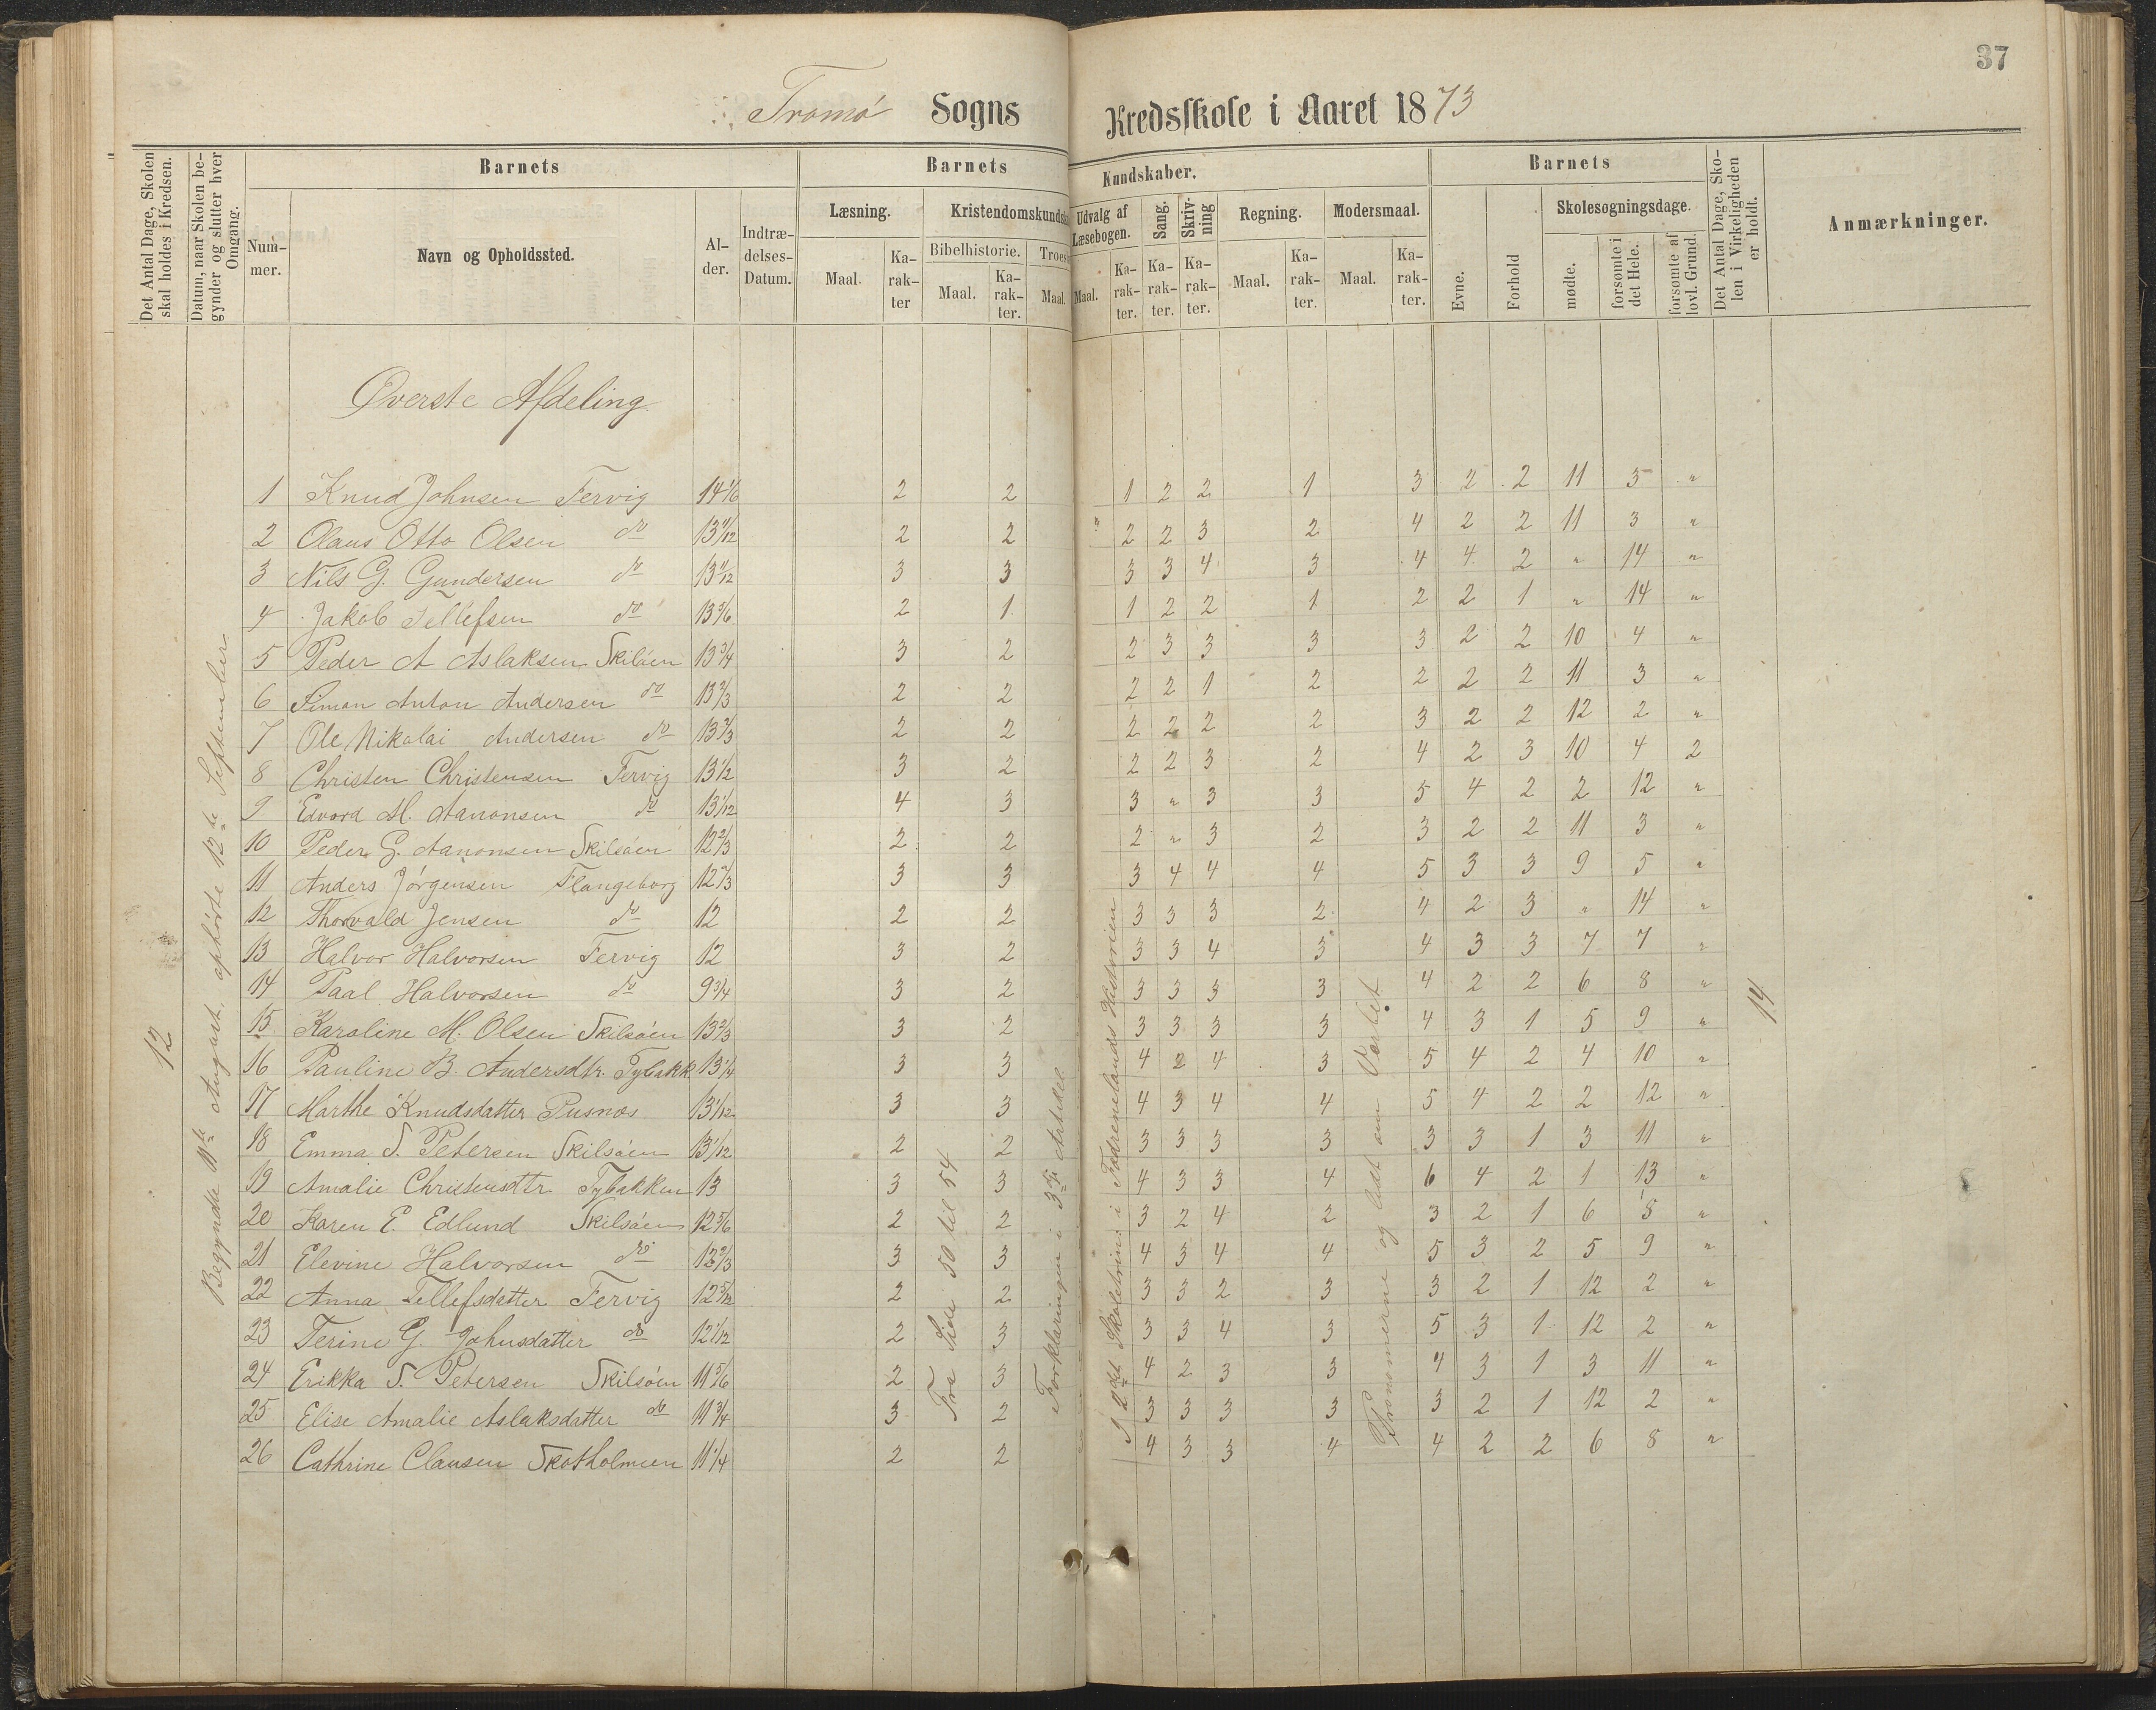 37
Tromø Sogns Kredsskole i Aaret 1873
Det Antal Dage, Skolen skal holdes i Kredsen.
Datum, naar Skolen begynder og slutter hver Omgang.
Barnets
Barnets Kundskaber.
Barnets
Det Antal Dage, Skolen i Virkeligheden er holdt.
Anmærkninger.
Nummer.
Navn og Opholdssted.
Alder.
Indtrædelses-Datum.
Læsning.
Maal.
Karakter
Kristendomskundsk
Bibelhistorie.
Maal.
Karakter.
Troes
Maal.
Udvalg af Læsebogen.
Maal.
Karakter.
Sang.
Karakter.
Skrivning
Karakter.
Regning.
Maal.
Karakter.
Modersmaal.
Maal.
Karakter.
Evne.
Forhold
Skolesøgningsdage.
mødte.
forsømte i det Hele.
forsømte af lovl. Grund.
Øverste Afdeling
1 Knud Johnsen Fervig 14 1/6 2 2 1 2 2 1 3 2 2 11 3 "
2 Olaus Otto Olsen do 13 11/12 2 2 2 2 3 2 4 2 2 11 3 "
3 Nils G. Gundersen do 13 11/12 3 3 3 3 4 3 4 4 2 " 14 "
4 Jakob Tellefsen do 13 5/6 2 1 1 2 2 1 2 2 1 " 14 "
5 Peder A Aslaksen Skilsöen 13 3/4 3 2 2 3 3 3 3 2 2 10 4 "
6 Simon Anton Andersen do 13 2/3 2 2 2 2 1 2 2 2 2 11 3 "
7 Ole Nikolai Andersen do 13 2/3 2 2 2 2 2 2 3 2 2 12 2 "
8 Christen Christensen Fervig 13 1/2 3 2 2 2 3 2 4 2 3 10 4 2
9 Edvard M. Aanonsen do 13 1/12 4 3 3 " 3 3 5 4 2 2 12 "
10 Peder G. Aanonsen Skilsöen 12 2/3 2 2 2 " 3 2 3 2 2 11 3 "
11 Anders Jörgensen Flangeborg 12 2/3 3 3 3 4 4 4 5 3 3 9 5 "
12 Thorvald Jensen do 12 2 2 3 3 3 2 4 2 3 " 14 "
13 Halvor Halvorsen Fervig 12 3 2 3 3 4 3 4 3 3 7 7 "
14 Paal Halvorsen do 9 3/4 3 2 3 3 3 3 4 2 2 6 8 "
15 Karoline M. Olsen Skilsöen 13 2/3 3 2 3 3 3 3 4 3 1 5 9 "
16 Pauline B. Andersdtr. Tybakk. 13 1/4 3 3 4 2 4 3 5 4 2 4 10 "
17 Marthe Knudsdatter Pusnæs 13 1/12 3 3 4 3 4 4 5 4 2 2 12 "
18 Emma S. Petersen Skilsöen 13 1/12 2 2 3 3 3 3 3 3 1 3 11 "
19 Amalie Christensdtr Tybakken 13 3 3 4 3 3 4 6 4 2 1 13 "
20 Karen E. Edlund Skilsöen 12 5/6 2 2 3 2 4 2 3 2 1 6 8 "
21 Elevine Halvorsen do 12 2/3 3 3 4 3 4 4 5 3 2 5 9 "
22 Anna Tellefsdatter Fervig 12 5/12 2 2 3 3 2 3 3 2 1 12 2 "
23 Terine G. Johnsdatter do 12 1/12 2 3 3 3 4 3 5 3 1 12 2 "
24 Erikka S. Petersen Skilsöen 11 5/6 2 3 4 2 3 3 4 3 1 3 11 "
25 Elise Amalie Aslaksdatter do 11 3/4 3 2 3 3 3 3 3 2 1 12 2 "
26 Cathrine Clausen Skotholmen 11 1/4 2 2 4 3 3 4 4 2 2 6 8 "
12
Begyndte 11te August, ophörte 12te September
Fra Side 50 til 54
Forklaringen i 3die Artikel
I 2det Skoletrin: i Fædrenelandets Historien
Pronomerne og lidt om Verbet
14